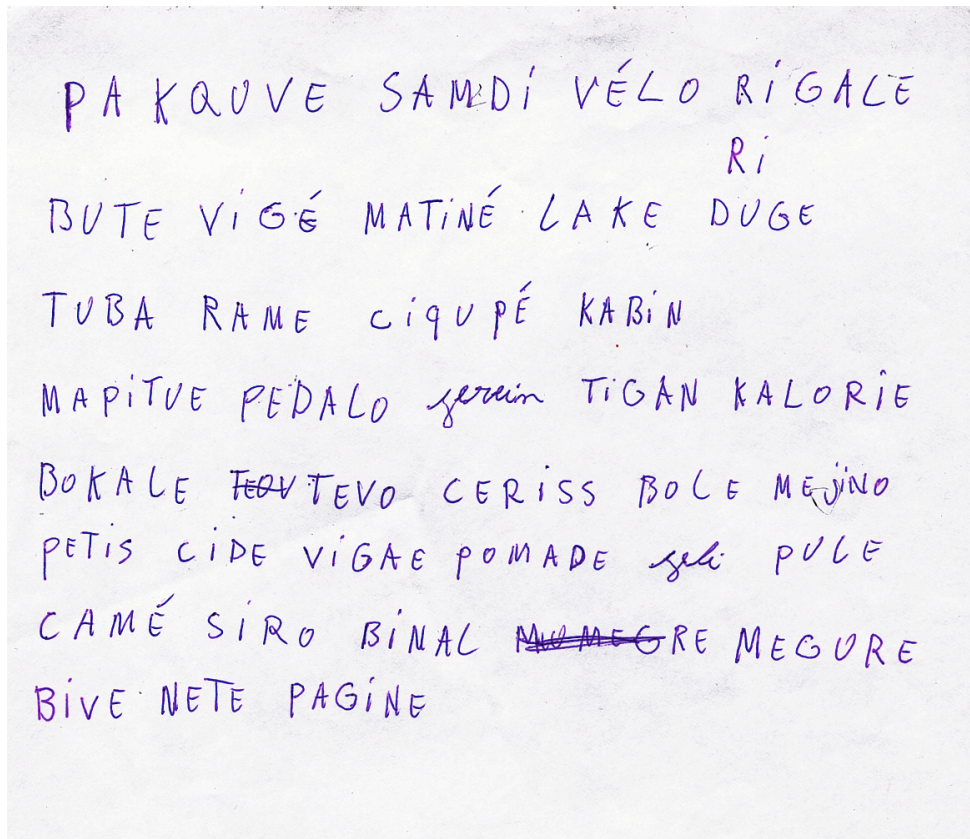 PA KQUVE SAMDi VÉLO RiGALE
Ri
BUTE ViGÉ MATiNÉ LAKE DUGE
TUBA RAME CiqUPÉ KABiN
MAPiTUE PEDALO serein TiGAN KALORiE
BOKALE TEVO CERiSS BOLE MEjiNO
PETiS CiDE ViGAE POMADE geli PULE
CAMÉ SiRO BiNAL RE MEGURE
BiVE NETE PAGiNE